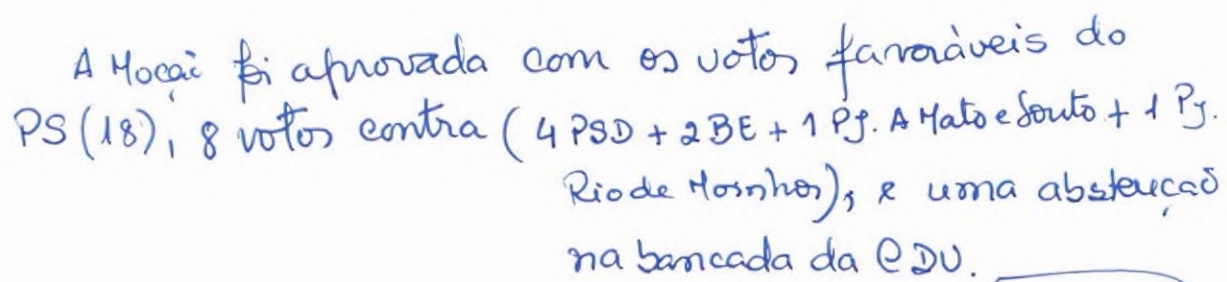 A Moção foi aprovada com os votos favoráveis do
PS (18), 8 votos contra (4 PSD + 2 BE + 1 Pj. A Mato e Souto + 1 Pj.
Rio de Moinhos), e uma abstenção
na bancada da CDU.